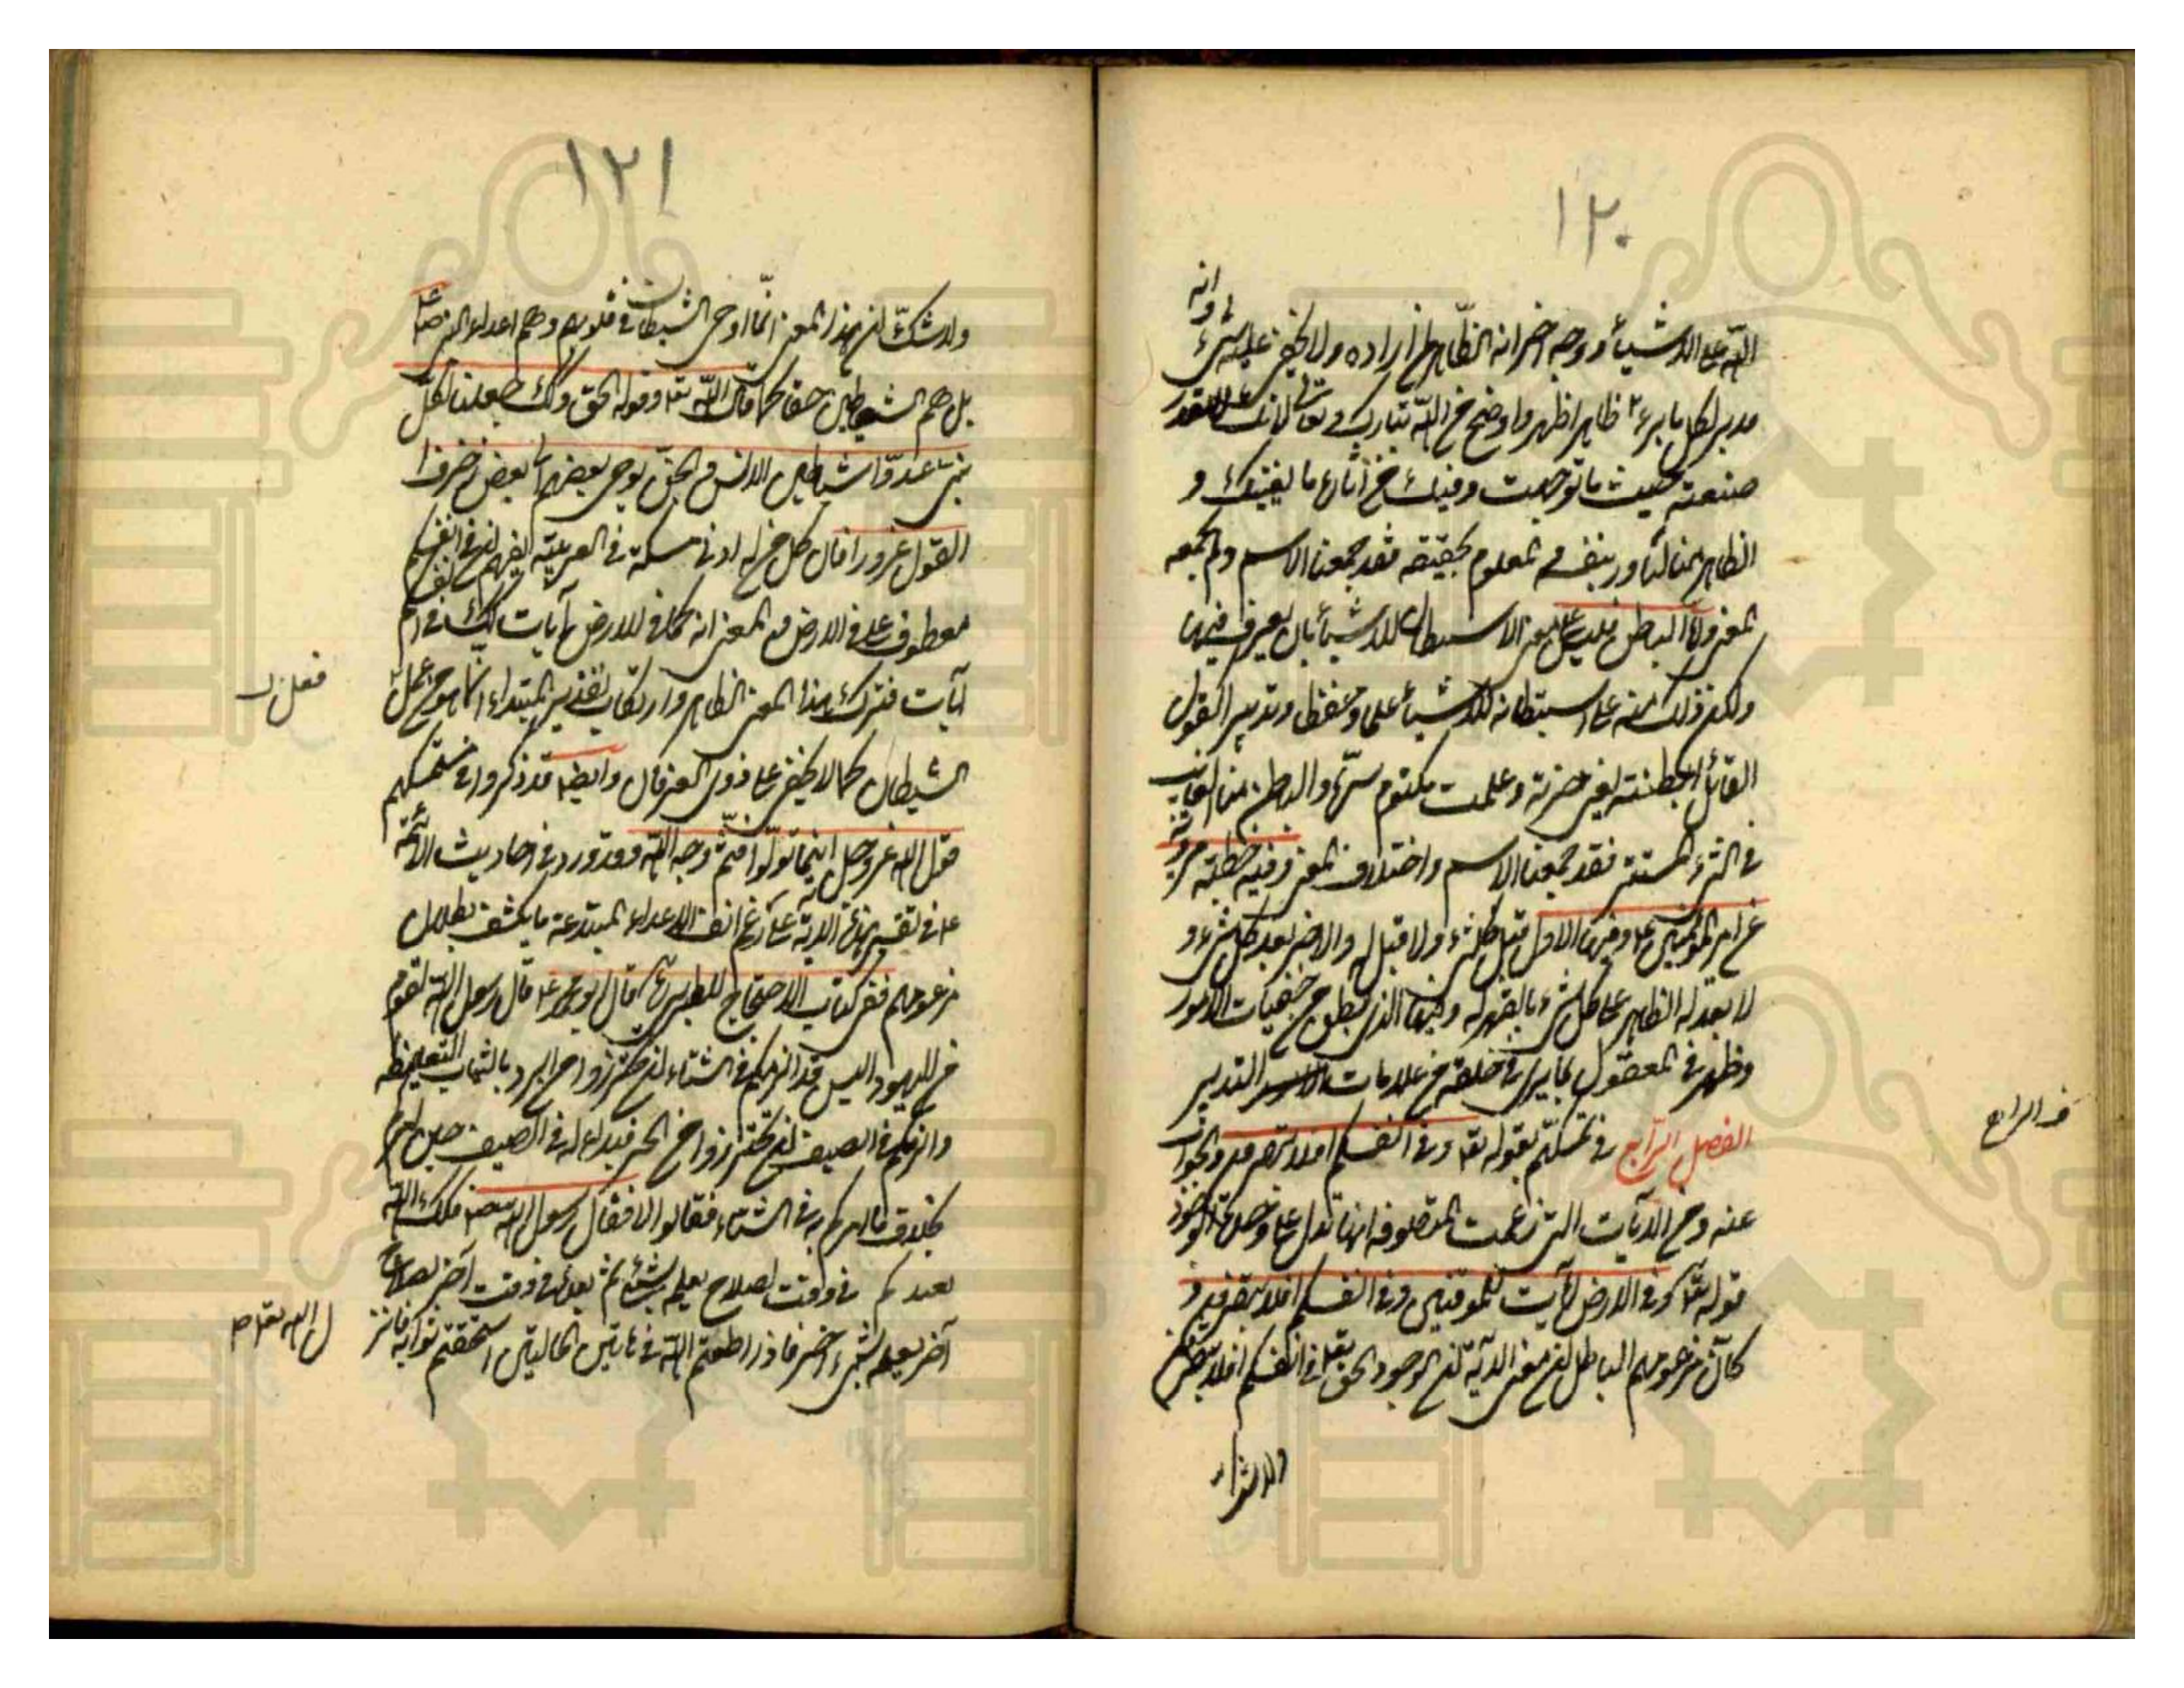 ١٢٠
وانه
الله على الاشياء ووجه اخر انه الظاهر لمن اراده ولا يخفى عليه شيء
مدبر لكل ما يرى ظاهر اظهر واوضح من الله تبارك وتعالى لانك لا تعدم
صنعته حيث ما توجهت وفيك من آثاره ما يغنيك و
الظاهر منا لبارز بنفسه المعلوم بحقيقته فقد جمعنا الاسم ولم يجمعه
المعنى واما الباطن فليس على معنى الاستبطان للاشياء بان يغور فيها
ولكن ذلك منه على استبطانه للاشياء علما وحفظا وتدبيرا كقول
القائل ابطنته يعنى خبرته وعلمت مكتوم سره والباطن منا الغائب
في الشيء المستتر فقد جمعنا الاسم واختلاف المعنى وفيه خطبة مروية
عن امير المؤمنين ع وفيها الاول قبل كل شيء ولا قبل له والاخر بعد كل شيء و
لا بعد له الظاهر على كل شيء بالقهر له وفيها الذي بطن من خفيات الامور
وظهر في المعقول بما يرى في خلقه من علامات التدبير
الفصل الرابع في تمسكهم بقوله تعا وفي انفسكم افلا تبصرون والجواب
عنه ومن الآيات التي زعمت المتصوفة انها تدل على وحدة الوجود
قوله تعا وفي الارض لآيات للموقنين وفي انفسكم افلا تبصرون و
كان مزعومهم الباطل ان معنى الآية ان الوجود الحق تعا في انفسكم افلا تبصرون
ف الرابع
ولا شك
١٢١
ولا شك ان هذا المعنى انما اوحى الشيطان في قلوبهم وهم اعداء النبي ص
بل هم الشياطين حقا كما قال الله تعا وقوله الحق وكذلك جعلنا لكل
نبي عدوا شياطين الانس والجن يوحي بعضهم الى بعض زخرف
القول غرورا فان كل من له ادنى مسكة في العربية يفهم ان في انفسكم
معطوف على في الارض والمعنى انه كما في الارض آيات كذلك في انفسكم
آيات فترك هذا المعنى الظاهر وارتكاب تقدير المبتداء انما هو من عمل
الشيطان كما لا يخفى على ذوى العرفان وايضا قد ذكروا في تمسكهم
قول الله عز وجل اينما تولوا فثم وجه الله وقد ورد في احاديث الائمة
ع في تفسير هذه الآية على رغم انف الاعداء المبتدعة ما يكشف بطلان
مزعومهم ففي كتاب الاحتجاج للطبرسي قال ابو محمد ع قال رسول الله لقوم
من اليهود اليس قد الزمكم في الشتاء ان تحترزوا من البرد بالثياب الغليظة
والزمكم في الصيف ان تحترزوا من الحر فبدا له في الصيف حين امركم
بخلاف ما امركم به في الشتاء فقالوا لا فقال رسول الله ص فكذلك الله
تعبدكم في وقت لصلاح يعلمه بشيء ثم بعده في وقت آخر لصلاح
آخر يعلمه بشيء اخر فاذا اطعتم الله في هاتين الحالتين استحققتم ثوابه فانز
ل الله تعا